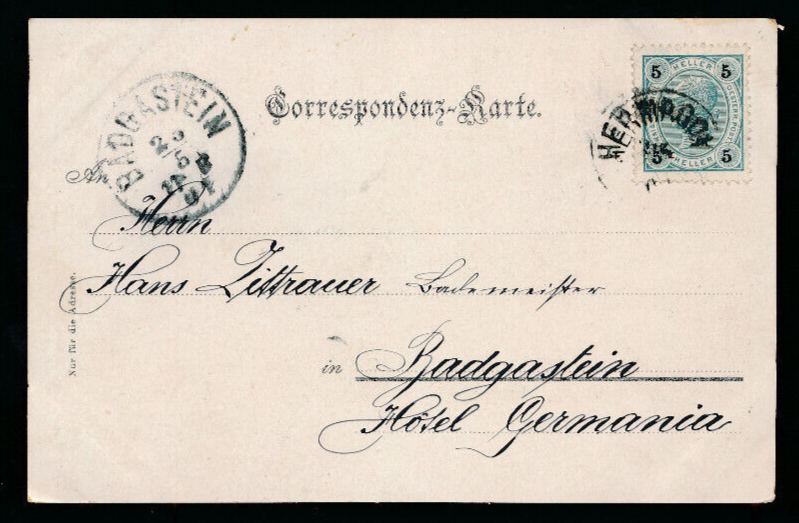 Correspondenz-Karte.
5 HELLER 5
5 HELLER 5
HERMAGOR
BADGASTEIN
An
Herrn
Hans Zittrauer Bademeister
in Badgastein
Hôtel Germania
Nur für die Adresse.